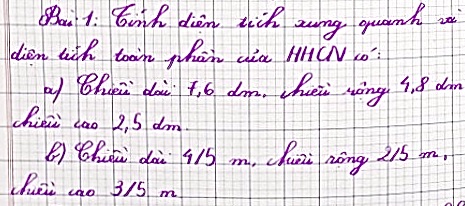 Bài 1: Tính diện tích xung quanh và
diện tích toàn phần của HHCN có:
a) Chiều dài 7,6 dm, chiều rộng 4,8 dm
chiều cao 2,5 dm.
b) Chiều dài 4/5 m, chiều rộng 2/5 m,
chiều cao 3/5 m